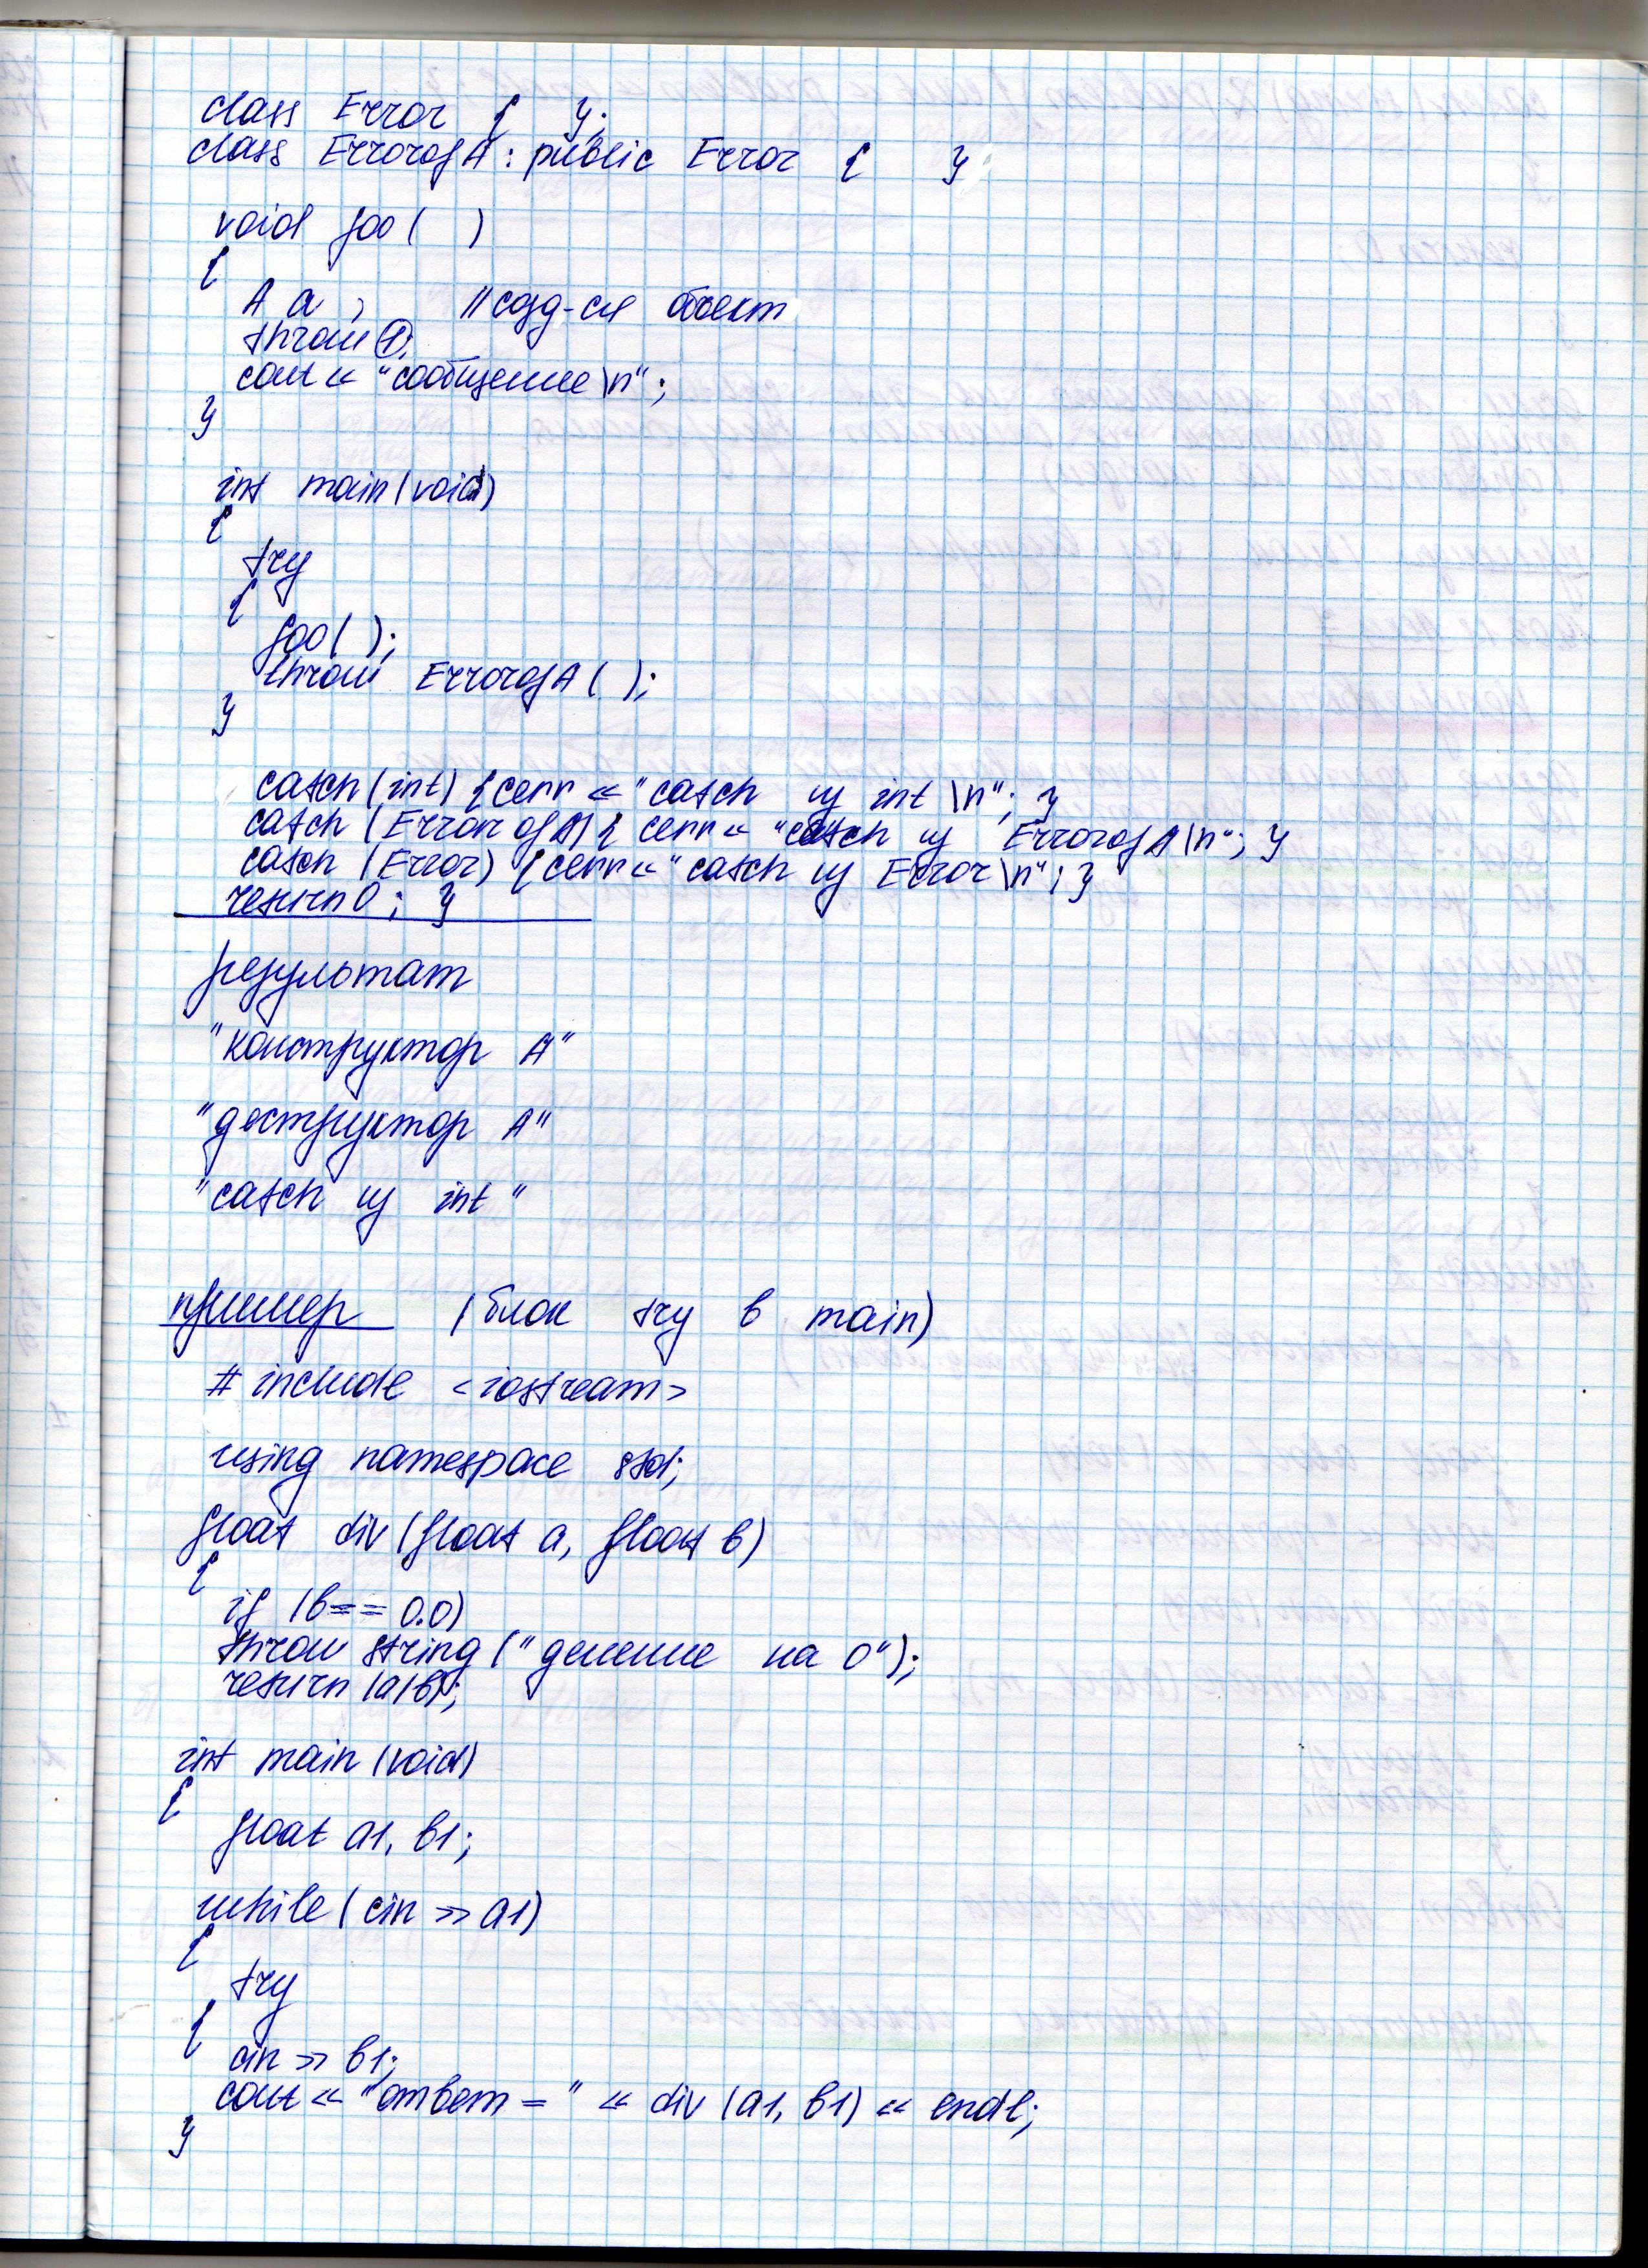 class Error { };
class ErrorofA : public Error { }
void foo( )
{
A a; //созд-ся объект
throw 1;
cout << "сообщение\n";
}
int main(void)
{
try
{
foo( );
throw ErrorofA( );
}
catch(int) {cerr << "catch из int \n"; }
catch (ErrorofA) { cerr << "catch из ErrorofA\n"; }
catch (Error) {cerr << "catch из Error\n"; }
return 0; }
результат
"конструктор А"
"деструктор А"
"catch из int"
пример (блок try в main)
# include <iostream>
using namespace std;
float div (float a, float b)
{
if (b == 0.0)
throw string ("деление на 0");
return (a/b);
int main (void)
{
float a1, b1;
while (cin >> a1)
{
try
{
cin >> b1;
cout << "ответ = " << div (a1, b1) << endl;
}